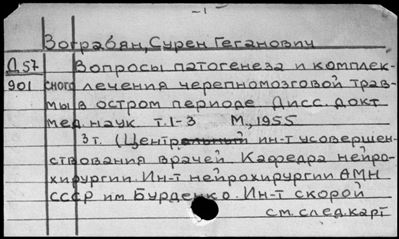 -1-
Зограбян, Сурен Геганович
Д57 Вопросы патогенеза и комплек-
901 сного лечения черепномозговой трав-
мы в остром периоде. Дисс. докт
мед. наук т.1-3 М., 1955
3т. (Центральный ин-т усовершен-
ствования врачей. Кафедра нейро-
хирургии. Ин-т нейрохирургии АМН
СССР им. Бурденко. Ин-т скорой
см. след. карт